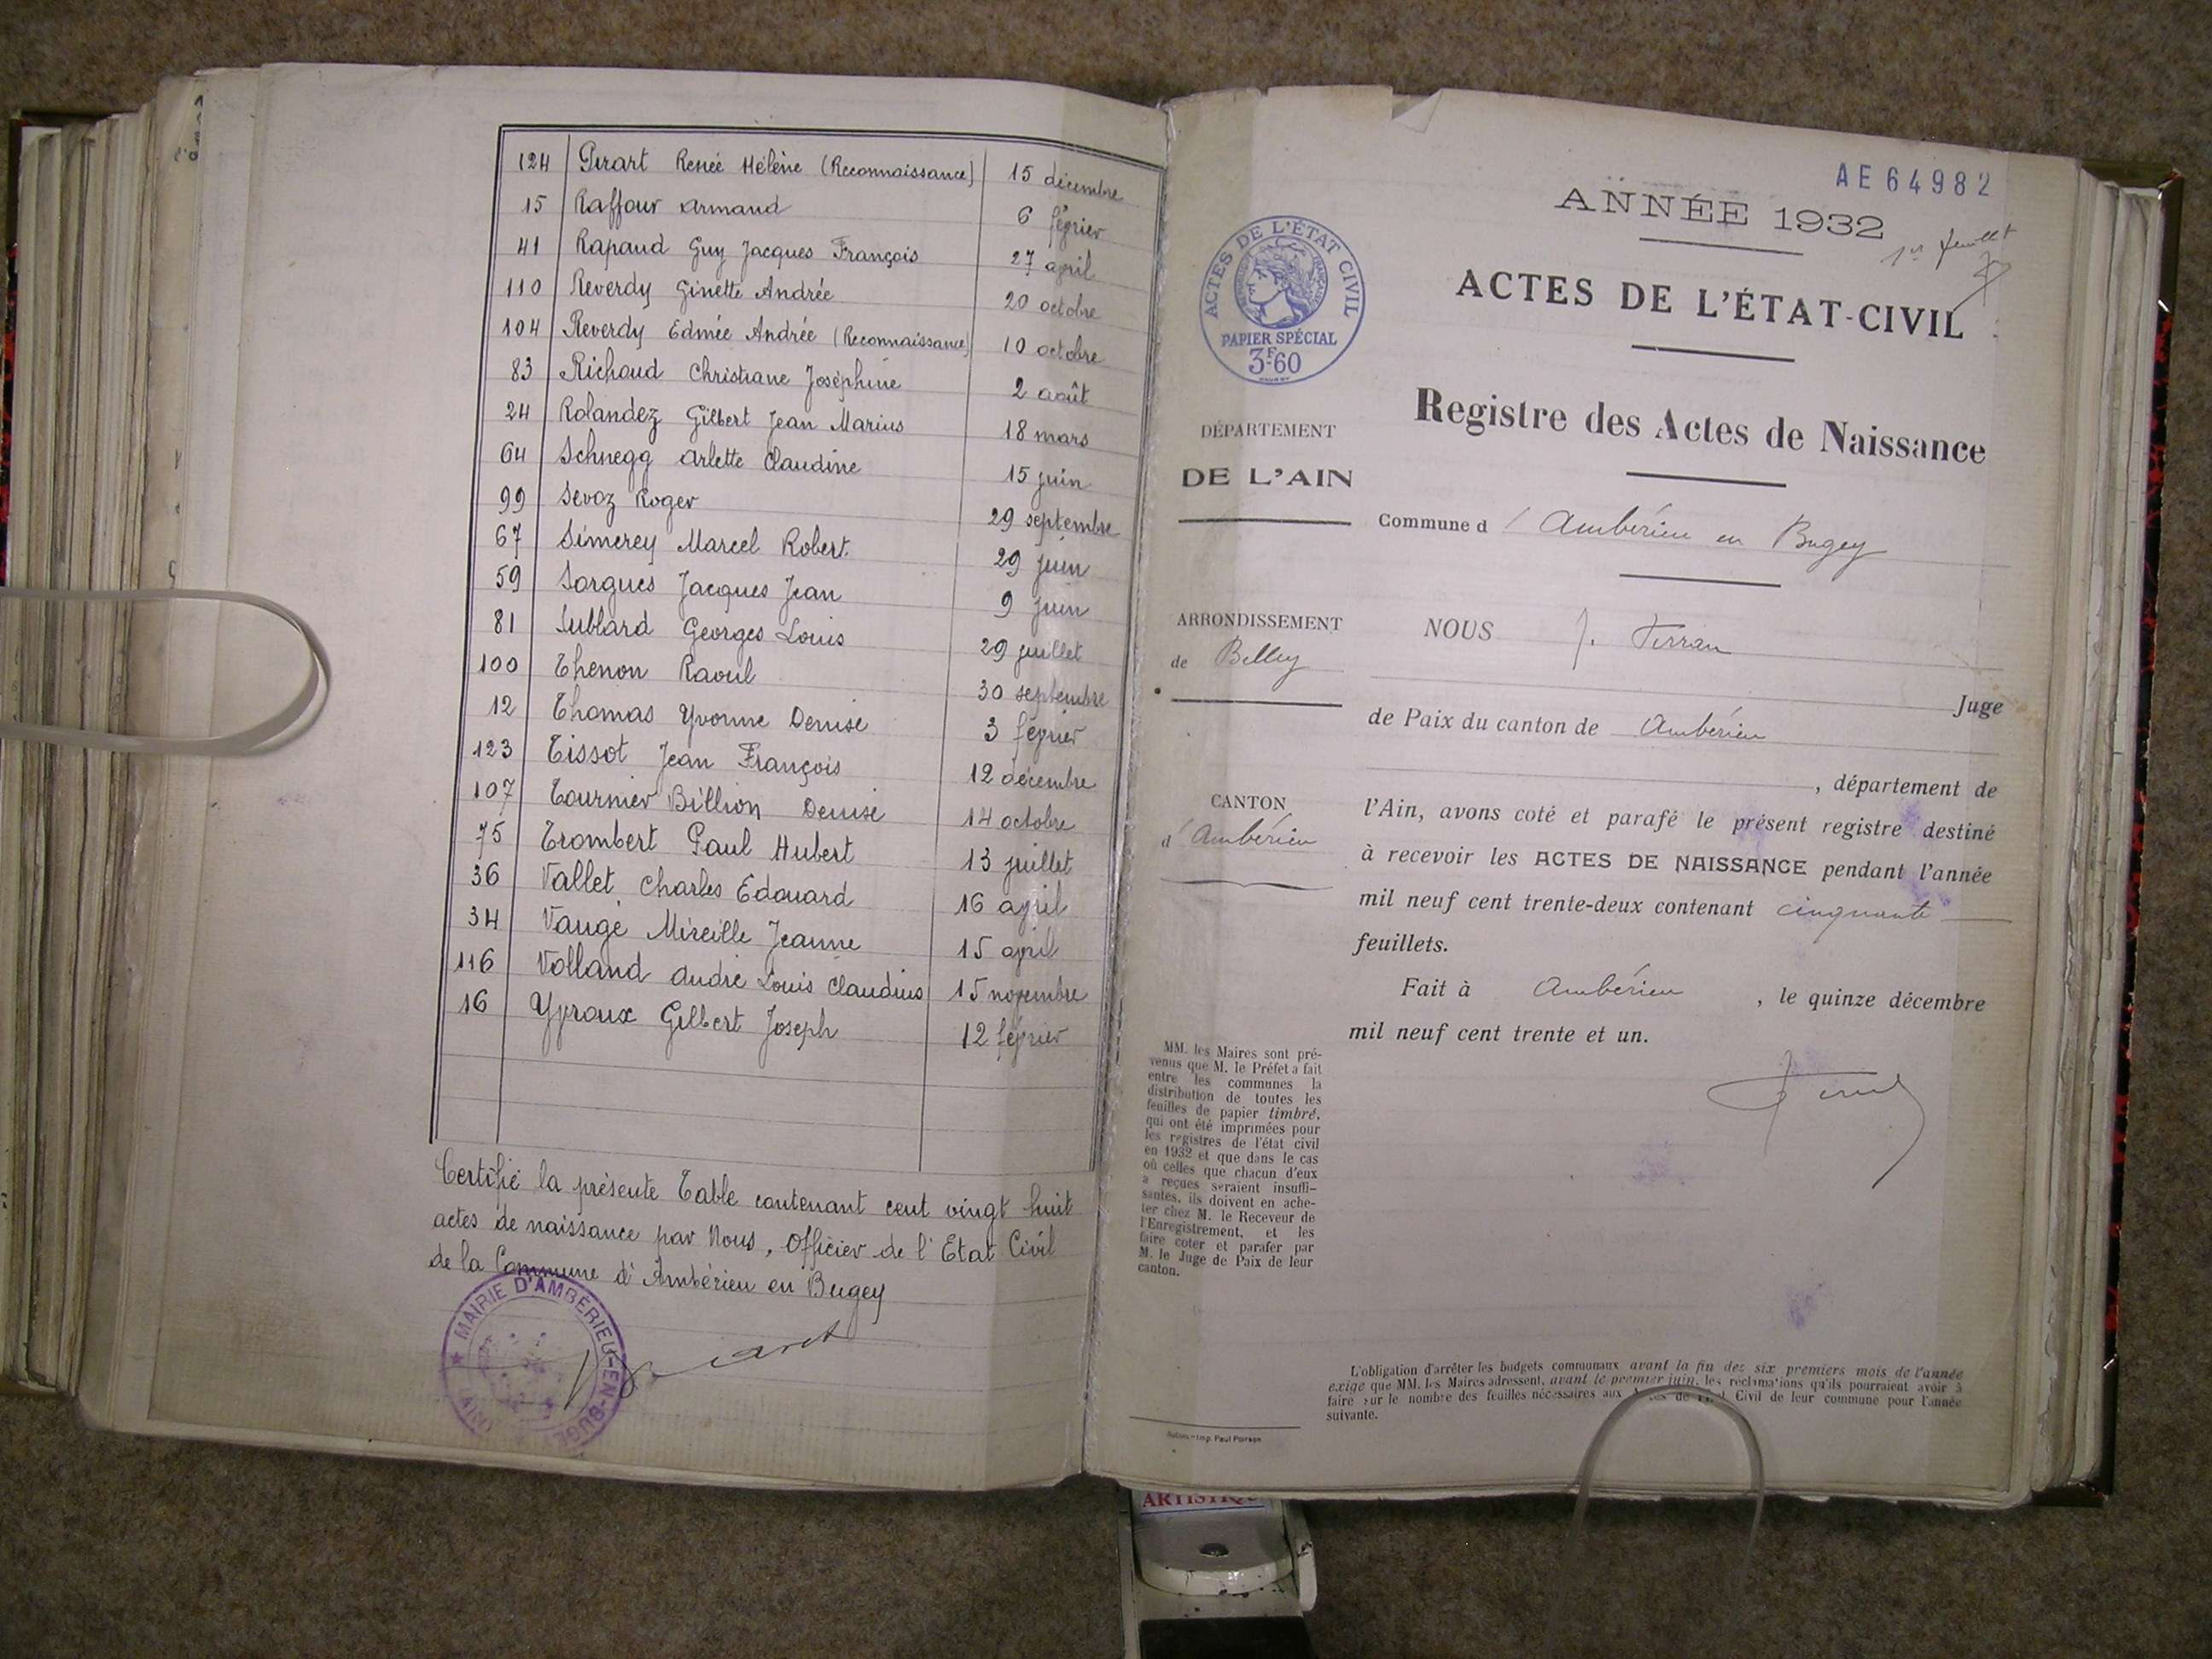 124 Pirart Renée Hélène (Reconnaissance) 15 décembre
15 Raffour Armand 6 février
41 Rapaud Guy Jacques François 27 avril
110 Reverdy Ginette Andrée 20 octobre
104 Reverdy Edmée Andrée (Reconnaissance) 10 octobre
83 Richoud Christiane Joséphine 2 août
24 Rolandez Gilbert Jean Marius 18 mars
64 Schnegg Arlette Claudine 15 juin
99 Sevoz Roger 29 septembre
67 Simerey Marcel Robert 29 juin
59 Sorgues Jacques Jean 9 juin
81 Sublard Georges Louis 29 juillet
100 Thenon Raoul 30 septembre
12 Thomas Yvonne Denise 3 février
123 Tissot Jean François 12 décembre
107 Tournier Billion Denise 14 octobre
75 Trombert Paul Hubert 13 juillet
36 Vallet Charles Edouard 16 avril
34 Vaugé Mireille Jeanne 15 avril
116 Volland André Louis Claudius 15 novembre
16 Yproux Gilbert Joseph 12 février
Certifié la présente Table contenant cent vingt huit
actes de naissance par Nous, Officier de l'Etat Civil
de la Commune d'Ambérieu en Bugey
MAIRIE D'AMBÉRIEU-EN-BUGEY
(AIN)
AE64982
ANNÉE 1932
1er feuillet
ACTES DE L'ÉTAT CIVIL
PAPIER SPÉCIAL
3F60
ACTES DE L'ÉTAT-CIVIL
Registre des Actes de Naissance
DÉPARTEMENT
DE L'AIN
Commune d'Ambérieu en Bugey
ARRONDISSEMENT
de Belley
CANTON
d'Ambérieu
NOUS J.
Juge
de Paix du canton de Ambérieu
, département de
l'Ain, avons coté et parafé le présent registre destiné
à recevoir les ACTES DE NAISSANCE pendant l'année
mil neuf cent trente-deux contenant cinquante
feuillets.
Fait à Ambérieu, le quinze décembre
mil neuf cent trente et un.
MM. les Maires sont pré-
venus que M. le Préfet a fait
entre les communes la
distribution de toutes les
feuilles de papier timbré,
qui ont été imprimées pour
les registres de l'état civil
en 1932 et que dans le cas
où celles que chacun d'eux
a reçues seraient insuffi-
santes, ils doivent en ache-
ter chez M. le Receveur de
l'Enregistrement, et les
faire coter et parafer par
M. le Juge de Paix de leur
canton.
L'obligation d'arrêter les budgets communaux avant la fin des six premiers mois de l'année
exige que MM. les Maires adressent, avant le premier juin, les réclamations qu'ils pourraient avoir à
faire sur le nombre des feuilles nécessaires aux Actes de l'Etat Civil de leur commune pour l'année
suivante.
Imp. Paul
ARTISTIQU